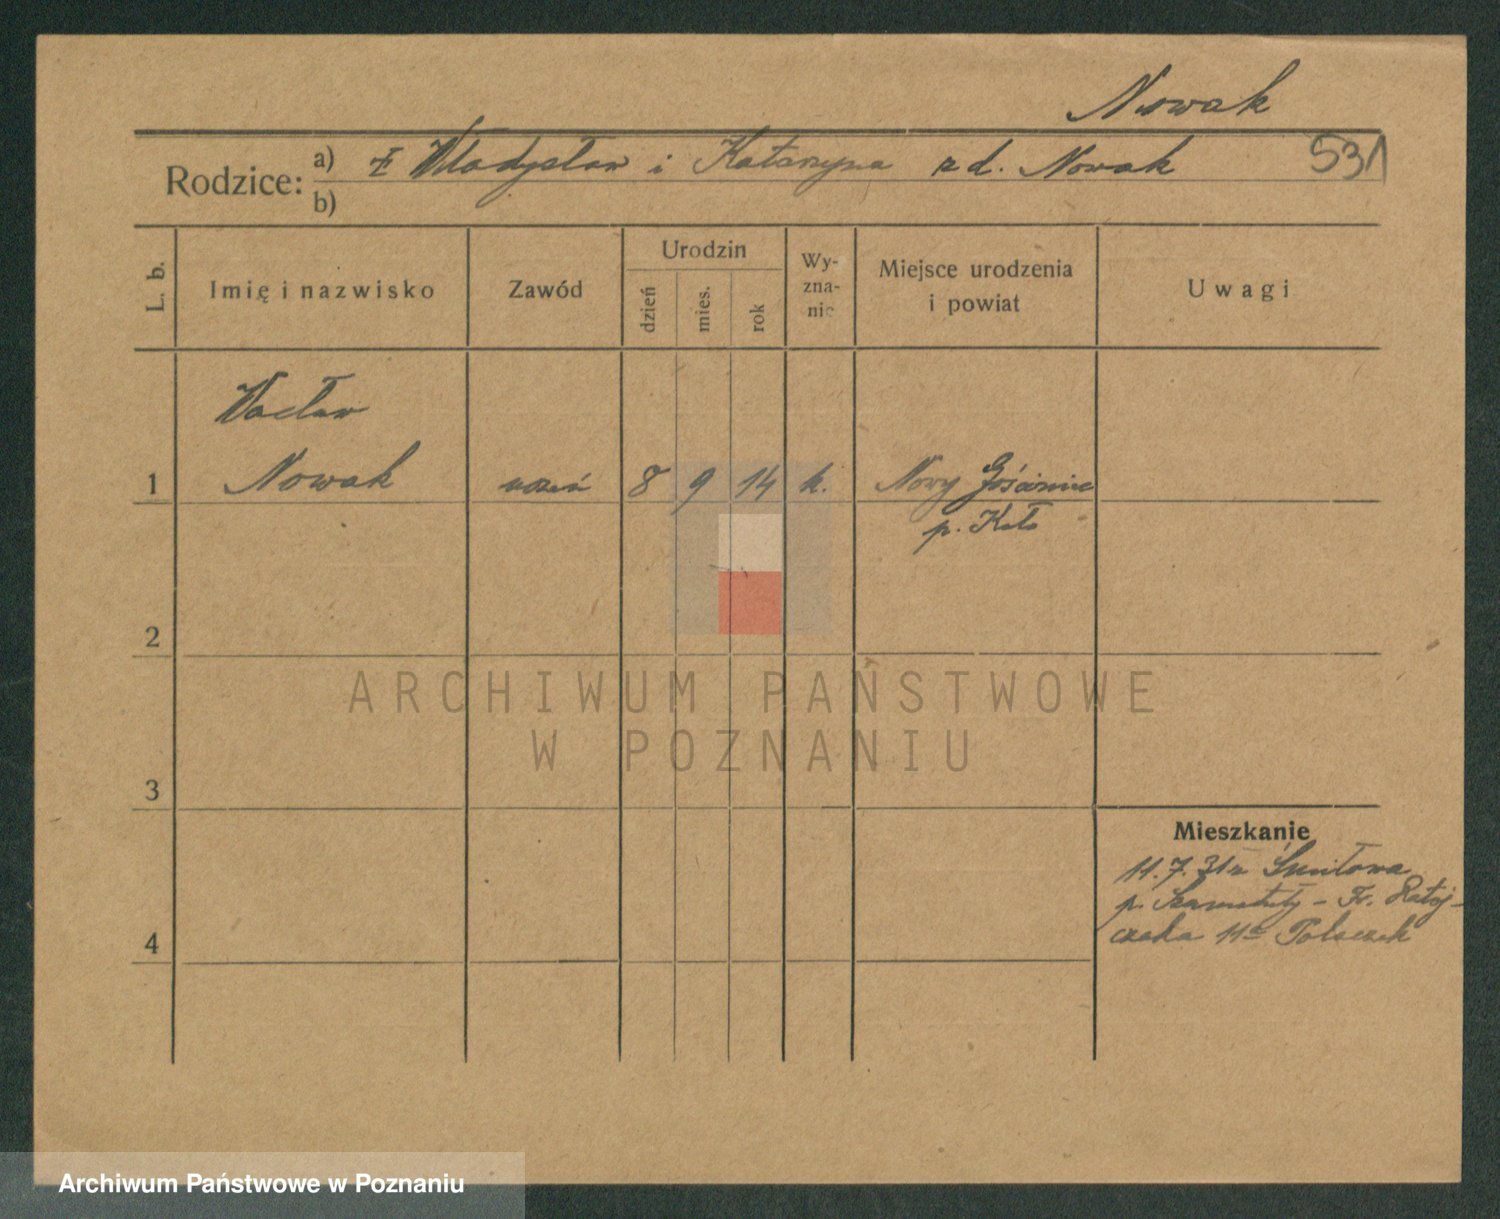 Nowak
531
Rodzice: a) Władysław i Katarzyna zd. Nowak
b)
L. b.
Imię i nazwisko
Zawód
Urodzin
dzień
mies.
rok
Wy-
zna-
nie
Miejsce urodzenia
i powiat
Uwagi
Wacław
1 Nowak uczeń 8 9 14 k. Nowy Gościniec
p. Koło
2
3
4
Mieszkanie
11.7.31 z Śmiłowa
p. Szamotuły - Fr. Rataj-
czaka 11a Polaczek
ARCHIWUM PAŃSTWOWE
W POZNANIU
Archiwum Państwowe w Poznaniu